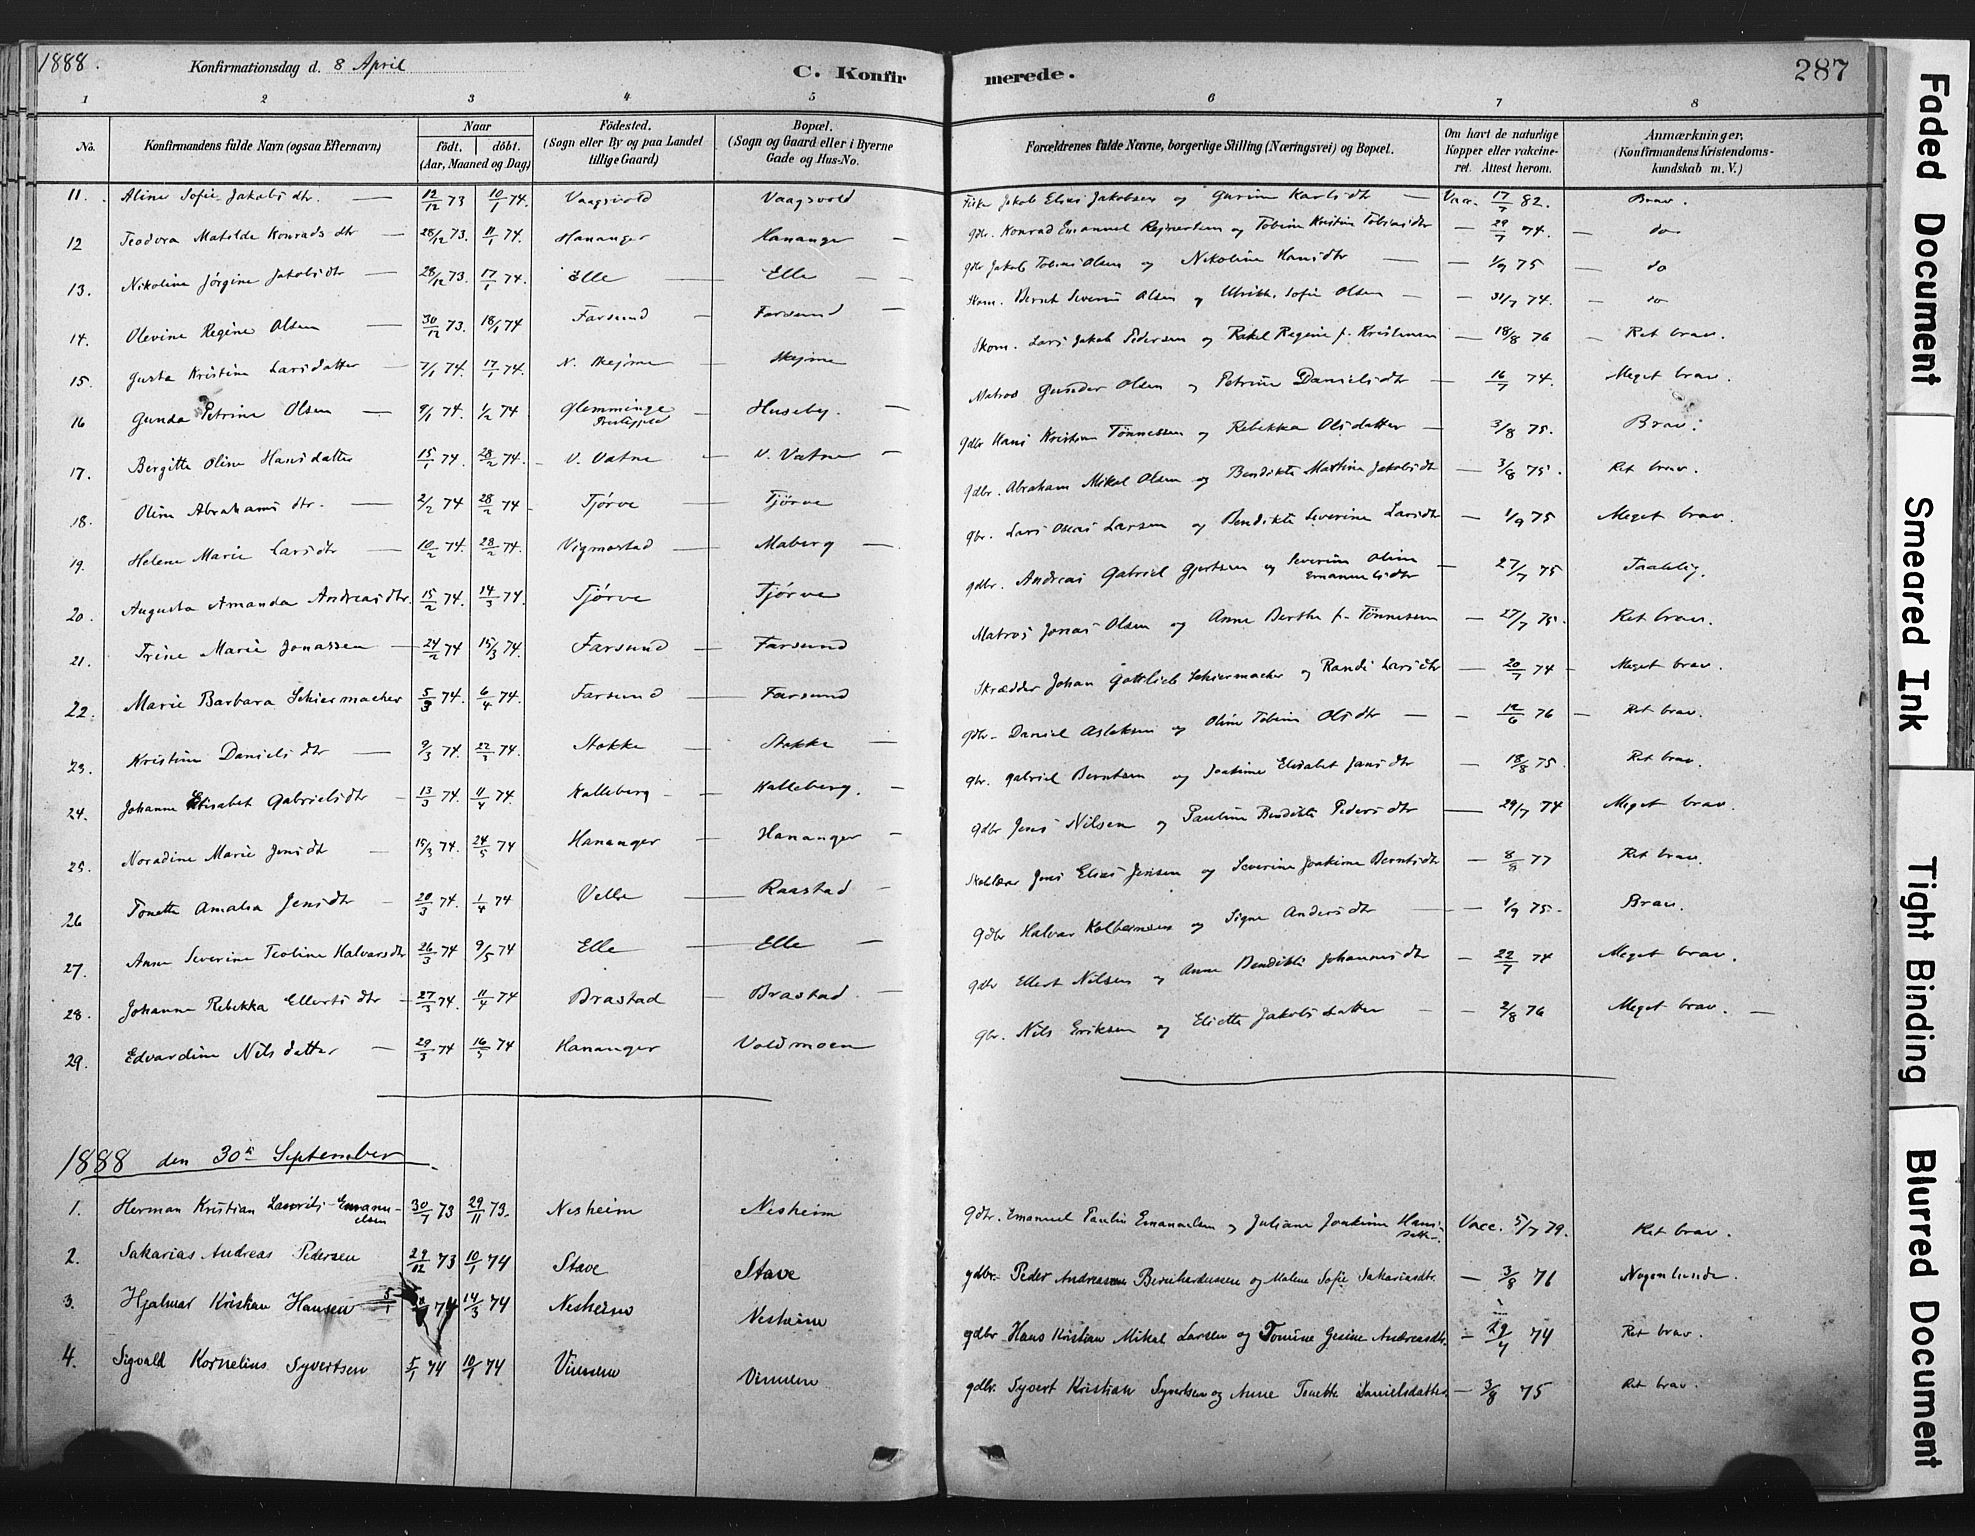 1888. Konfirmationsdag d. 8 April C. Konfirmerede. 287
1 2 3 4 5 6 7 8
No. Konfirmandens fulde Navn (ogsaa Efternavn) Naar født. døbt. (Aar, Maaned og Dag) Fødested. (Sogn eller By og paa Landet tillige Gaard) Bopæl. (Sogn og Gaard eller i Byerne Gade og Hus-No. Forældrenes fulde Navne, borgerlige Stilling (Næringsvei) og Bopæl. Om havt de naturlige Kopper eller vakcineret. Attest herom. Anmærkninger. (Konfirmandens Kristendomskundskab m. V.)
11. Aline Sofie Jakobsdtr. — 12/12 73 10/1 74. Vaagsvold Vaagsvold Jakob Elias Jakobsen og Gurine Karlsdtr — Vacc. 17/7 82. Brav.
12 Teodora Matilde Konradsdtr — 28/12 73. 11/1 74. Hananger Hananger — gdbr. Konrad Emanuel Rejnertsen og Tobine Kristine Tobiasdtr — 29/7 74. — do
13. Nikoline Jørgine Jakobsdtr — 28/12 73. 17/1 74. Elle — Elle — gdbr Jakob Tobias Olsen og Nikoline Hansdtr — 1/9 75 — do
14. Olevine Regine Olsen — 30/12 73. 18/1 74 Farsund — Farsund — Skom. Bernt Severin Olsen og Ulrikke Sofie Olsen — 31/7 74. — do
15. Gusta Kristine Larsdatter — 7/1 74. 17/1 74. N. Skejme — Skejme Skom. Lars Jakob Pedersen og Rakel Regine f. Kristensen — 18/8 76 — Ret brav.
16 Gunda Petrine Olsen — 9/1 74. 1/2 74 Glemminge Præstegjeld — Huseby. — Matros Gunder Olsen og Petrine Danielsdtr — 16/7 74. Meget brav.
17. Bergitte Oline Hansdatter 15/1 74. 28/2 74. V. Vatne — V. Vatne — gdbr Hans Kristian Tønnessen og Rebekka Olsdatter — 3/8 75. Brav.
18. Oline Abrahamsdtr. — 2/2 74 28/2 74 Tjørve — Tjørve gdbr. Abraham Mikal Olsen og Bendikte Martine Jakobsdtr — 3/8 75. Ret brav.
19. Helene Marie Larsdtr — 10/2 74. 28/2 74. Vigmostad — Maberg — gbr. Lars Oseas Larsen og Bendikte Severine Larsdtr — 1/9 75 Meget brav.
20. Augusta Amanda Andreasdtr. 15/2 74. 14/3 74. Tjørve Tjørve gdbr. Andreas Gabriel Gjertsen og Severine Oline Emanuelsdtr — 27/7 75 Taalelig.
21. Trine Marie Jonassen — 24/2 74 15/3 74. Farsund — Farsund Matros Jonas Olsen og Anne Berthe f. Tønnesen — 27/7 75. Ret brav.
22. Marie Barbara Schiermacher 5/3 74. 6/4 74. Farsund — Farsund Skrædder Johan Gottlieb Schiermacher og Randi Larsdtr — 20/7 74 — Meget brav.
23. Kristine Danielsdtr — 9/3 74. 22/3 74. Stokke — Stokke — gdbr. Daniel Aslaksen og Oline Tobine Olsdtr — 12/6 76 — Ret brav.
24. Johanne Elisabet Gabrielsdtr — 13/3 74. 11/4 74. Kalleberg — Kalleberg. — gbr. Gabriel Berntsen og Joakime Elisabet Jansdtr — 18/8 75. Ret brav.
25. Noradine Marie Jensdtr — 15/3 74. 24/5 74 Hananger — Hananger — gdbr Jens Nilsen og Pauline Bendikte Pedersdtr — 29/7 74 Meget brav.
26 Tonette Amalia Jensdtr — 20/3 74. 1/4 74 Velle — Raastad — Jens Elias Jensen og Severine Joakime Berntsdtr — 8/8 77 Ret brav.
27. Anne Severine Teoline Halvarsdtr 26/3 74 9/5 74 Elle — Elle — gdbr Halvar Kolbernsen og Signe Andersdtr — 1/9 75. Brav.
28. Johanne Rebekka Ellertsdtr — 27/3 74. 11/4 74 Brastad — Brastad. — gdbr Ellert Nilsen og Anne Bendikte Johannesdtr — 22/7 74 Meget brav.
29. Edvardine Nilsdatter — 29/3 74 16/5 74 Hananger Voldmoen gbr. Nils Eriksen og Eliette Jakobsdatter — 2/8 76 Meget brav. —
1888 den 30te September.
1. Herman Kristian Lauritz Emanuelsen 30/7 73 29/11 73. Nesheim Nesheim gdbr. Emanuel Paulin Emanuelsen og Juliane Joakime Hansdatter. Vacc. 5/7 79. Ret brav.
2. Sakarias Andreas Pedersen 29/12 73 10/1 74 Stave Stave gdbr. Peder Andreassen Bernhardussen og Malene Sofie Sakariasdtr. — 3/8 76 Nogenlunde.
3. Hjalmar Kristian Hansen 5/1 74 14/3 74 Nesheim Nesheim gdbr Hans Kristian Mikal Larsen og Tomine Gesine Andreasdtr. — 29/7 74 Ret brav.
4. Sigvald Kornelius Syvertsen 5/1 74 10/1 74 Vinnem Vinnem gdbr. Syvert Kristian Syvertsen og Anne Tonette Danielsdatter — 3/8 75 Ret brav.
Faded Document
Smeared Ink
Tight Binding
Blurred Document